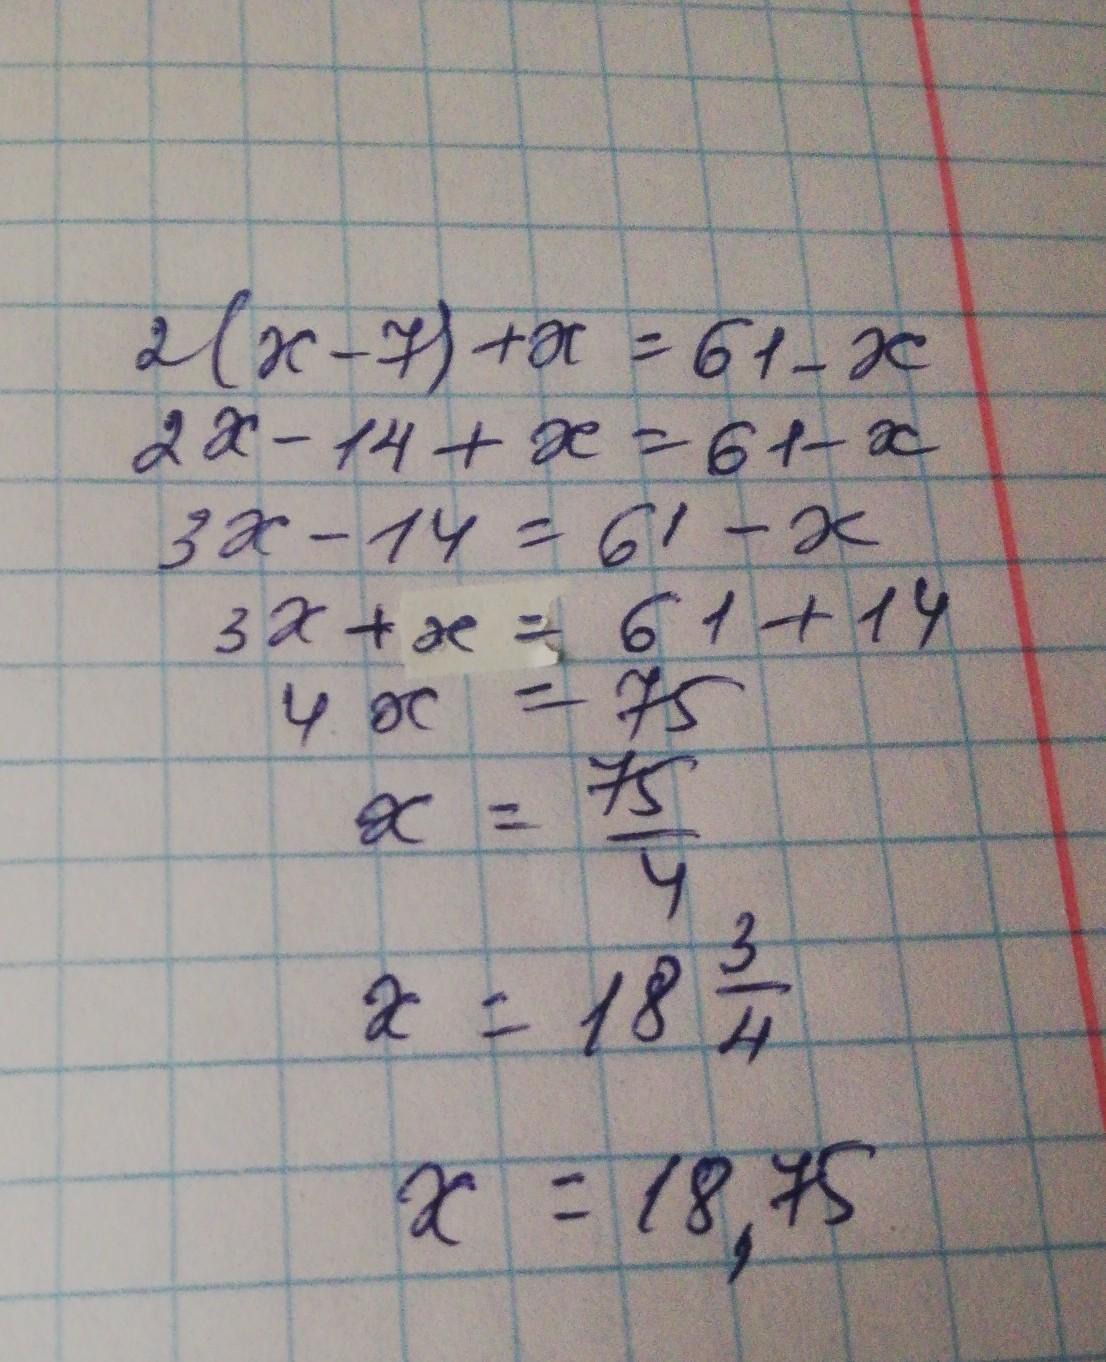 2(x-7)+x=61-x
2x-14+x=61-x
3x-14=61-x
3x+x=61+14
4x=75
x=75/4
x=18 3/4
x=18,75